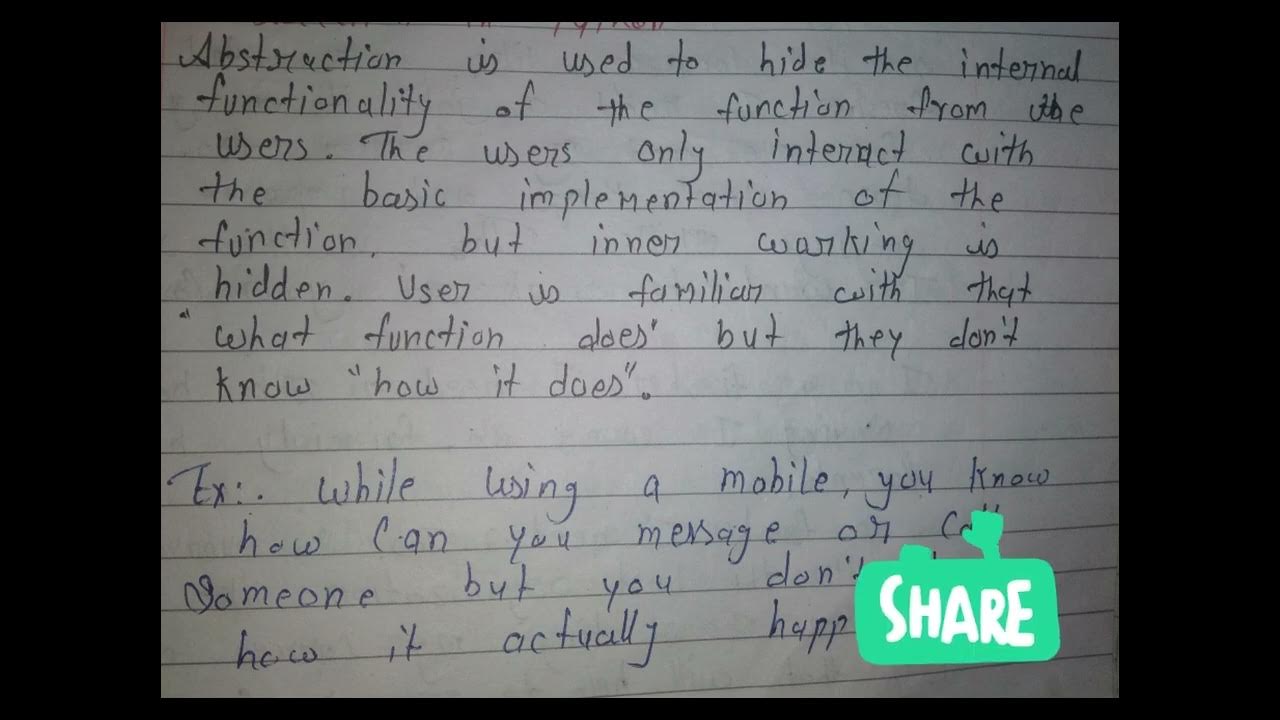 in Python
Abstraction is used to hide the internal
functionality of the function from the
users. The users only interact with
the basic implementation of the
function, but inner working is
hidden. User is familiar with that
"what function does" but they don't
know "how it does".
Ex:. While using a mobile, you know
how can you message or
someone but you don't
how it actually
SHARE